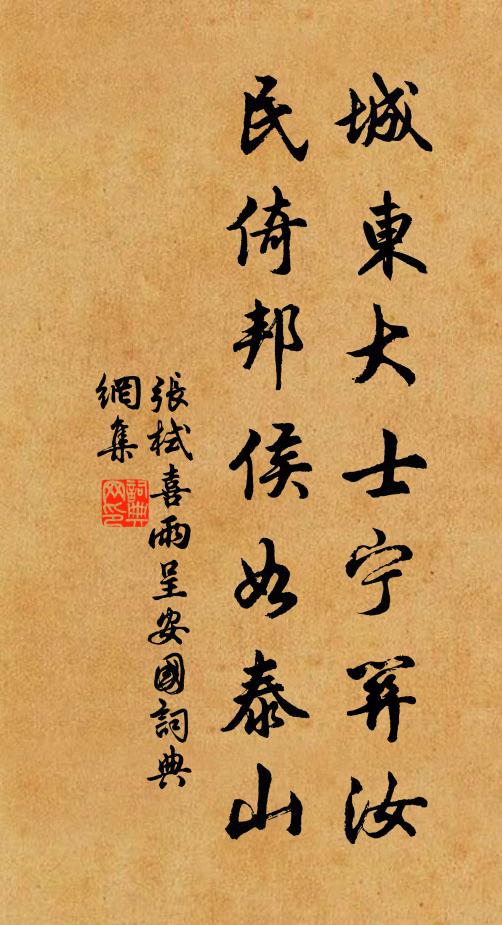 城東大士宁關汝
民倚邦侯如泰山
張栻喜雨呈安國詞典
網集
詞典
网印